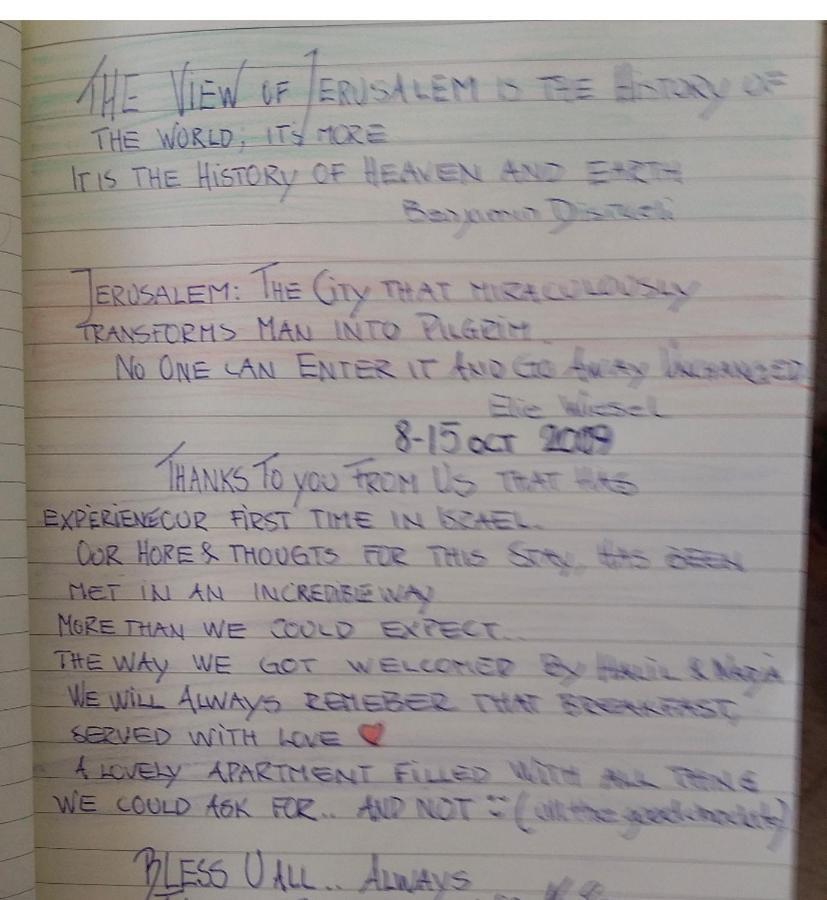 THE VIEW OF JERUSALEM IS THE HISTORY OF
THE WORLD; IT'S MORE
IT IS THE HISTORY OF HEAVEN AND EARTH
Benjamin Disraeli
JERUSALEM: THE CITY THAT MIRACULOUSLY
TRANSFORMS MAN INTO PILGRIM.
NO ONE CAN ENTER IT AND GO AWAY UNCHANGED
Elie Wiesel
8-15 OCT 2009
THANKS TO YOU FROM US THAT HAS
EXPERIENECOUR FIRST TIME IN ISRAEL.
OUR HOPE & THOUGTS FOR THIS STAY, HAS BEEN
MET IN AN INCREDIBLE WAY
MORE THAN WE COULD EXPECT...
THE WAY WE GOT WELCOMED BY &
WE WILL ALWAYS REMEBER THAT BREAKFAST,
SERVED WITH LOVE ❤
A LOVELY APARTMENT FILLED WITH ALL THING
WE COULD ASK FOR.. AND NOT :-( all the
BLESS U ALL.. ALWAYS